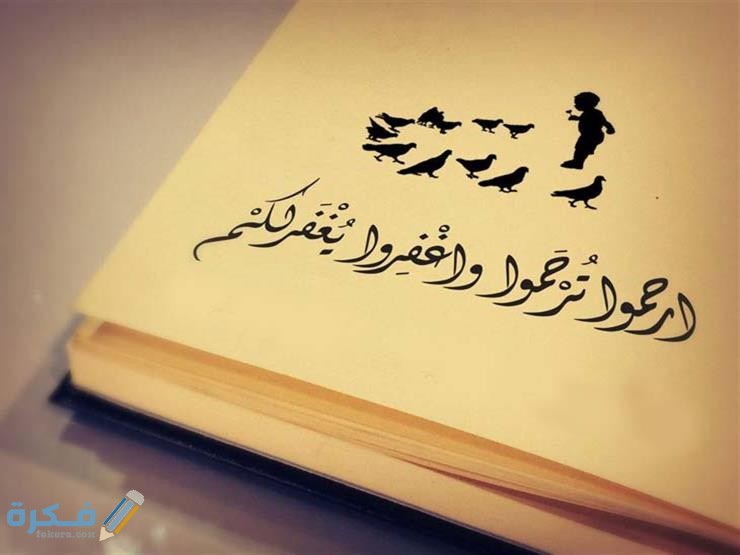 ارحموا تُرْحَموا واغْفِروا يُغْفَر لكْم
فكرة
fekera.com